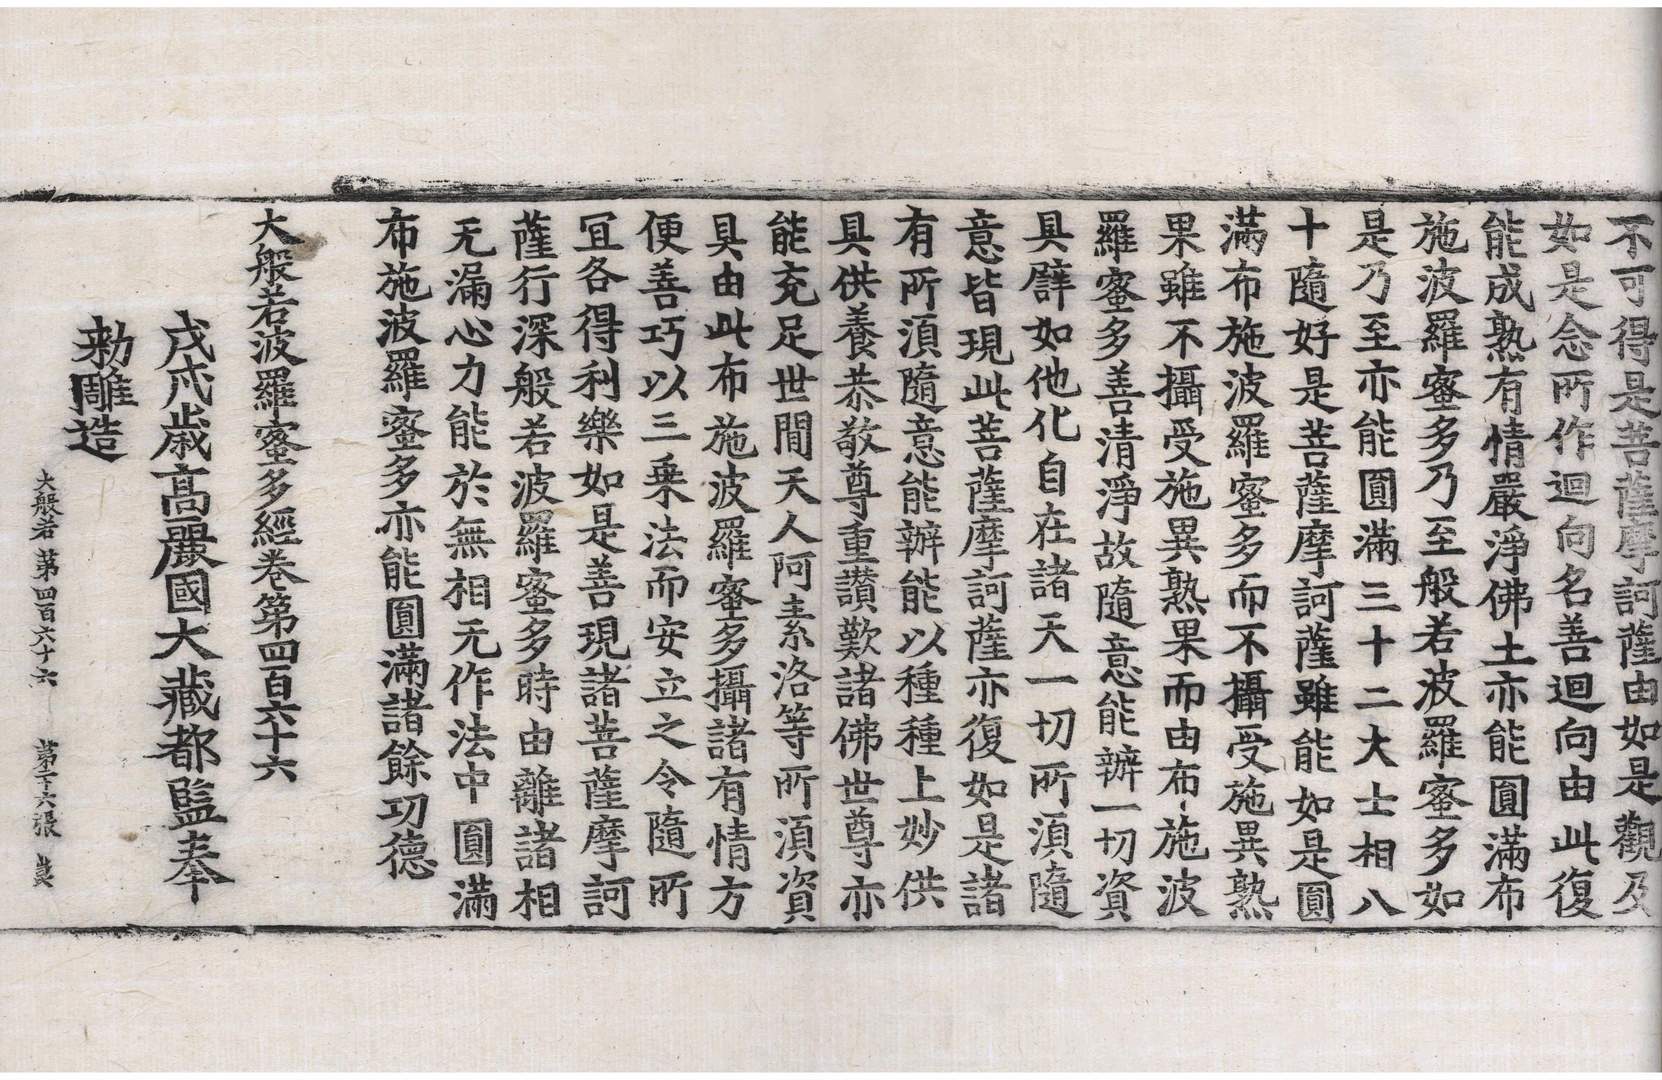 不可得是菩薩摩訶薩由如是觀及
如是念所作迴向名善迴向由此復
能成熟有情嚴淨佛土亦能圓滿布
施波羅蜜多乃至般若波羅蜜多如
是乃至亦能圓滿三十二大士相八
十隨好是菩薩摩訶薩雖能如是圓
滿布施波羅蜜多而不攝受施異熟
果雖不攝受施異熟果而由布施波
羅蜜多善清淨故隨意能辦一切資
具譬如他化自在諸天一切所湏隨
意皆現此菩薩摩訶薩亦復如是諸
有所湏隨意能辦能以種種上妙供
具供養恭敬尊重讚歎諸佛世尊亦
能充足世間天人阿素洛等所湏資
具由此布施波羅蜜多攝諸有情方
便善巧以三乘法而安立之令隨所
冝各得利樂如是善現諸菩薩摩訶
薩行深般若波羅蜜多時由離諸相
无漏心力能於無相无作法中圓滿
布施波羅蜜多亦能圓滿諸餘功德
大般若波羅蜜多經卷第四百六十六
戊戌歲高麗國大藏都監奉
勅雕造
大般若 第四百六十六 第二十六張 㫤